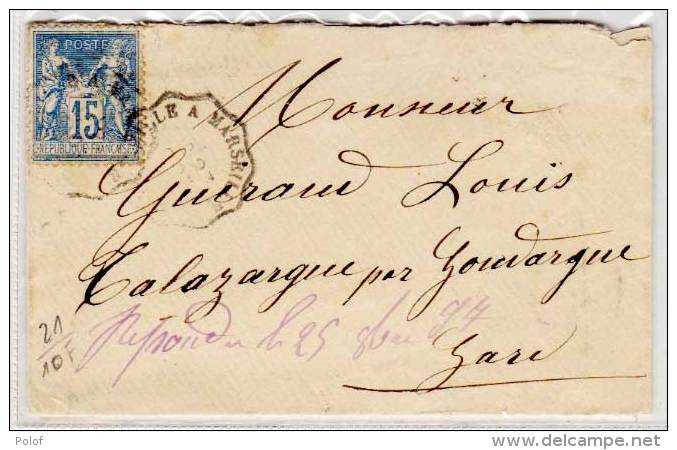 POSTE
15
REPUBLIQUE FRANÇAISE
LE A MARSEIL
Monsieur
Gueraud Louis
Talazargue par Goudargue
Répondu le 25 8bre 94
Gard
21
10F
Polof
www.delcampe.net